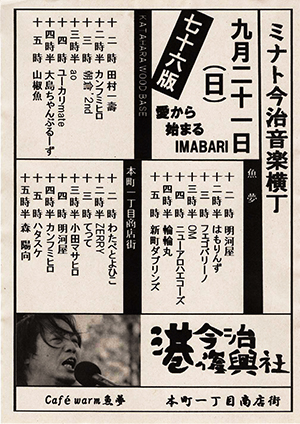 ミナト今治音楽横丁
九月二十一日
(日)
七十六版
愛から
始まる
IMABARI
KATAHARA WOOD BASE
十二時 田村一壽
十二時半 カンフミヒロ
十三時 朝倉・2nd
十三時半 ao
十四時 ユーカリmate
十四時半 大島ちゃんぷるーず
十五時 山椒魚
魚夢
十二時 明河屋
十二時半 はもりんず
十三時 フェゴバリーノ
十三時半 OM
十四時 ニューアロハエコーズ
十四時半 輪輪丸
十五時 新町ダブリンズ
本町一丁目商店街
十二時 わたべとよひこ
十二時半 ZERRY
十三時 てって
十三時半 小田マサヒロ
十四時 明河屋
十四時半 カンフミヒロ
十五時 ハタスケ
十五時半 森 陽向
港今治復興社
Café warm 魚夢
本町一丁目商店街